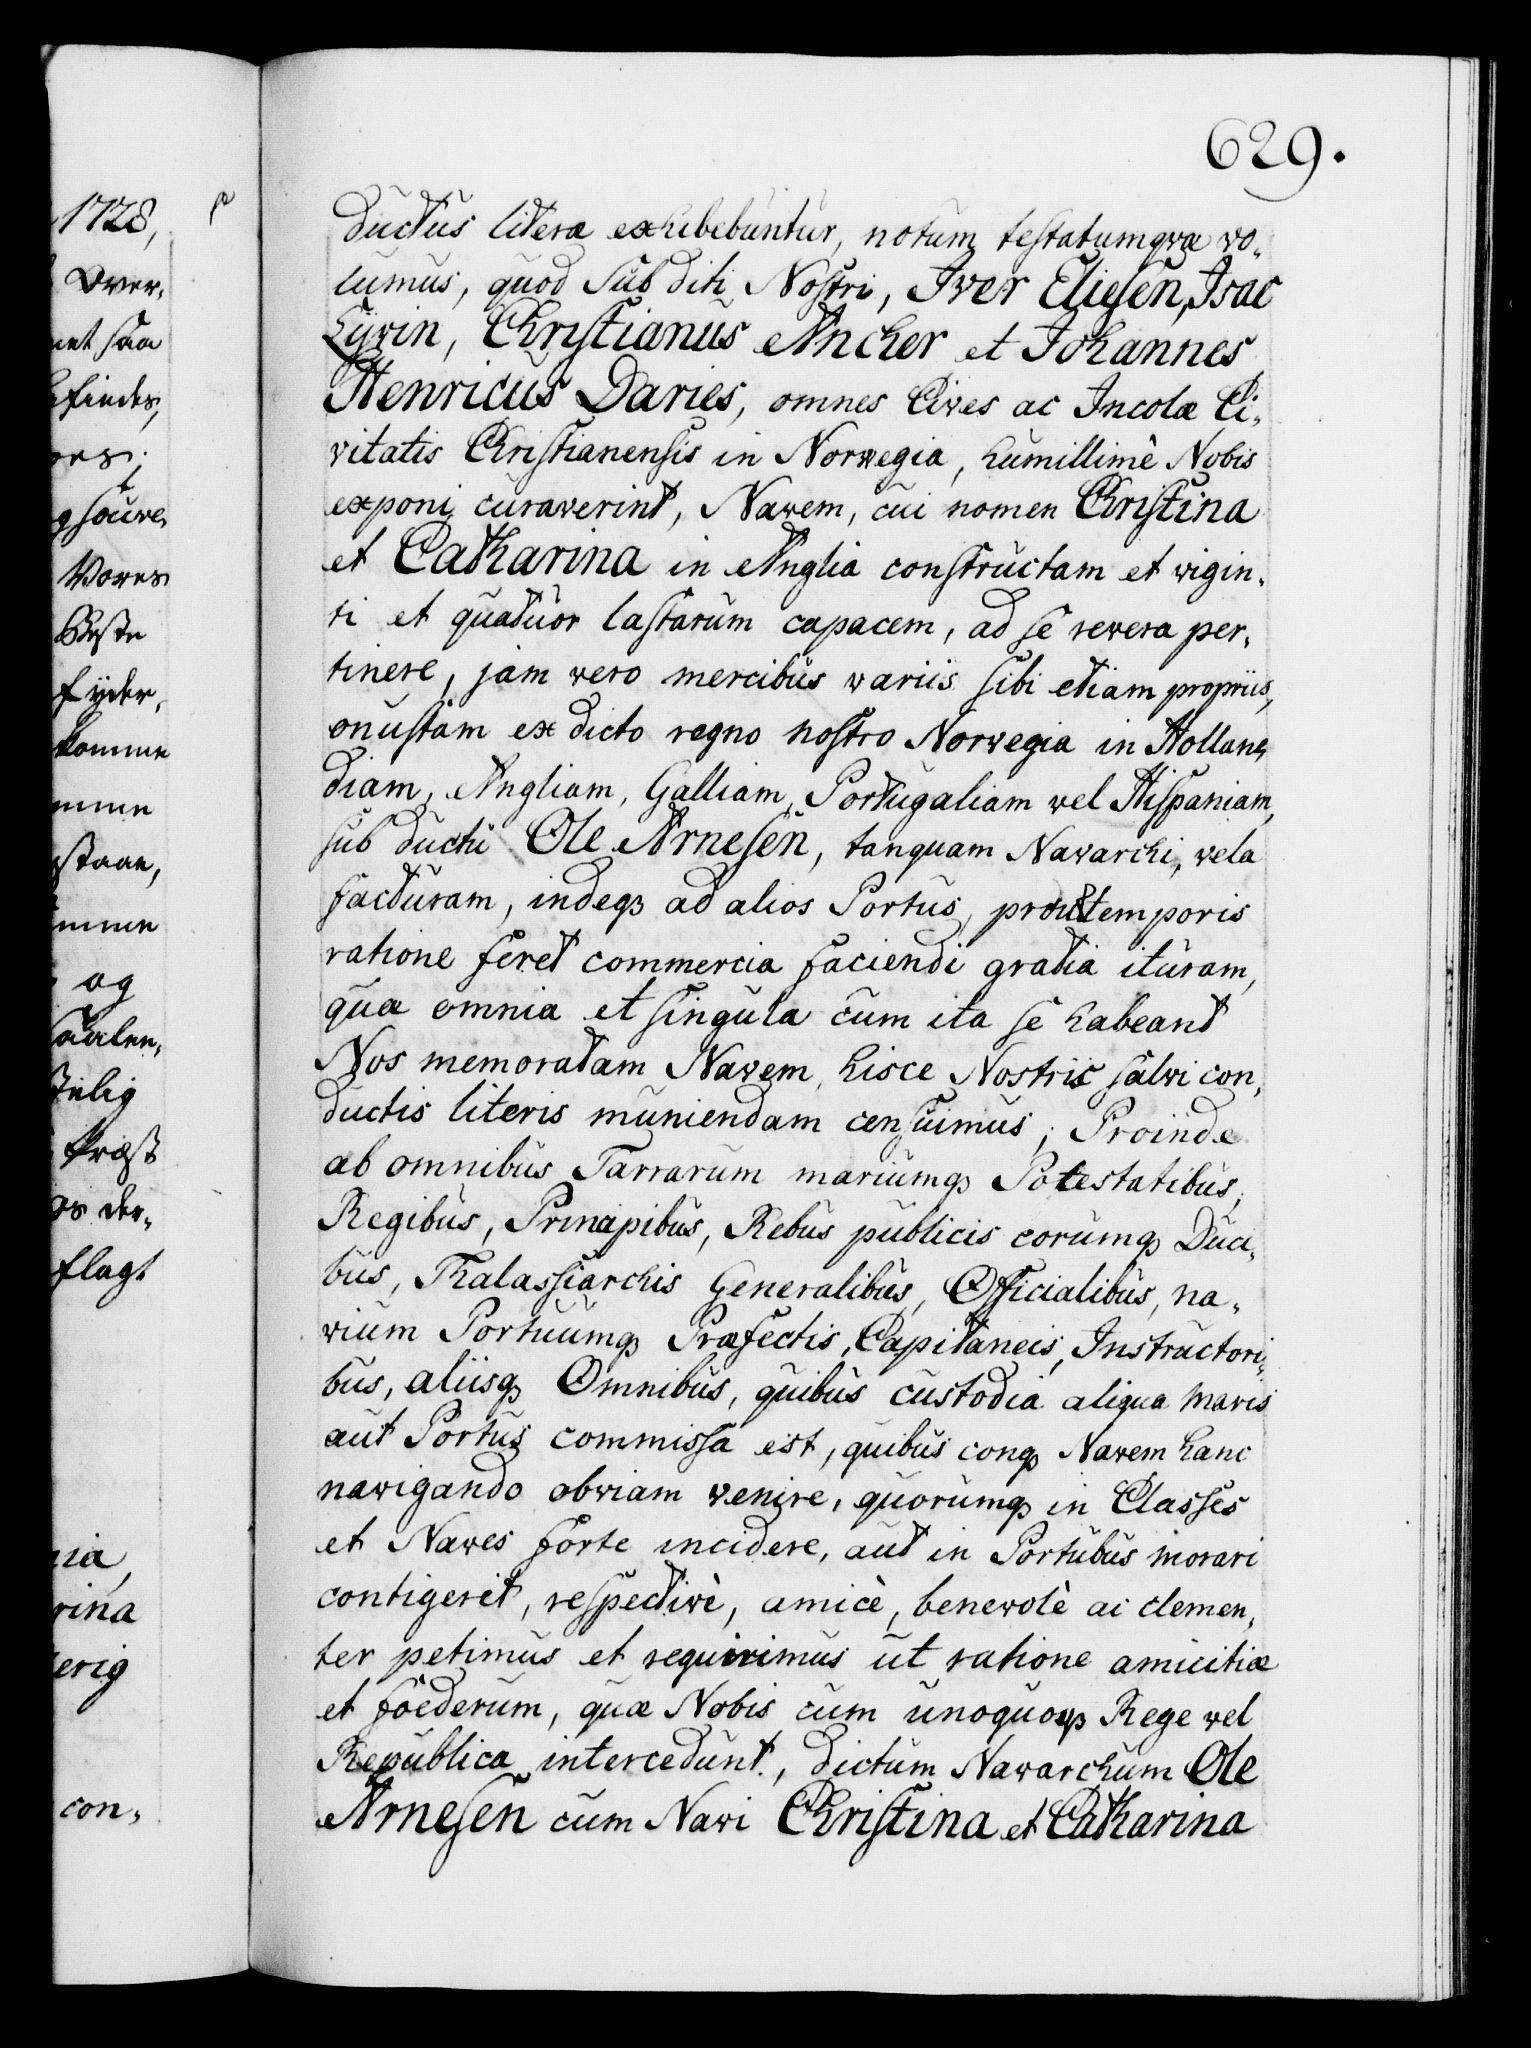 629.
1728,
Over-
komme
og
con-
ductus literæ exhibebuntur, notum testatumqvæ vo-
lumus, quod Subditi Nostri, Iver Eliesen, Isac
Lywin, Christianus Ancher et Johannes
Henricus Daries, omnes Cives ac Incolæ Ci-
vitatis Christianensis in Norwegia, humillimè Nobis
exponi curaverint, Navem, cui nomen Christina
et Catharina in Anglia constructam et vigin-
ti et quatuor lastarum capacem, ad se revera per-
tinere, jam vero mercibus variis sibi etiam propriis,
onustam ex dicto regno nostro Norvegia in Hollan-
diam, Angliam, Galliam, Portugaliam vel Hispaniam,
sub ductu Ole Arnesen, tanquam Navarchi, vela
facturam, indeqz ad alios Portus, prout temporis
ratione feret commercia faciendi gratia ituram,
quæ omnia et singula cum ita se habeant
Nos memoratam Navem, hisce Nostris salvi con-
ductis literis muniendam censuimus; Proinde
ab omnibus Tarrarum mariumqz Potestatibus,
Regibus, Principibus, Rebus publicis eorumqz Duci-
bus, Thalassiarchis Generalibus, Officialibus, na-
vium Portuumqz Præfectis, Capitaneis, Instructori-
bus, aliisqz Omnibus, quibus custodia aliqua Maris
aut Portus commissa est, quibus conqz Navem hanc
navigando obviam venire, quorumqz in Classes
et Naves forte incidere, aut in Portubus morari
contigerit, respectivè, amicè, benevolè ac clemen-
ter petimus et requirimus ut ratione amicitiæ
et foederum, quæ Nobis cum unoquoqz Rege vel
Republica intercedunt, dictum Navarchum Ole
Arnesen cum Navi Christina et Catharina